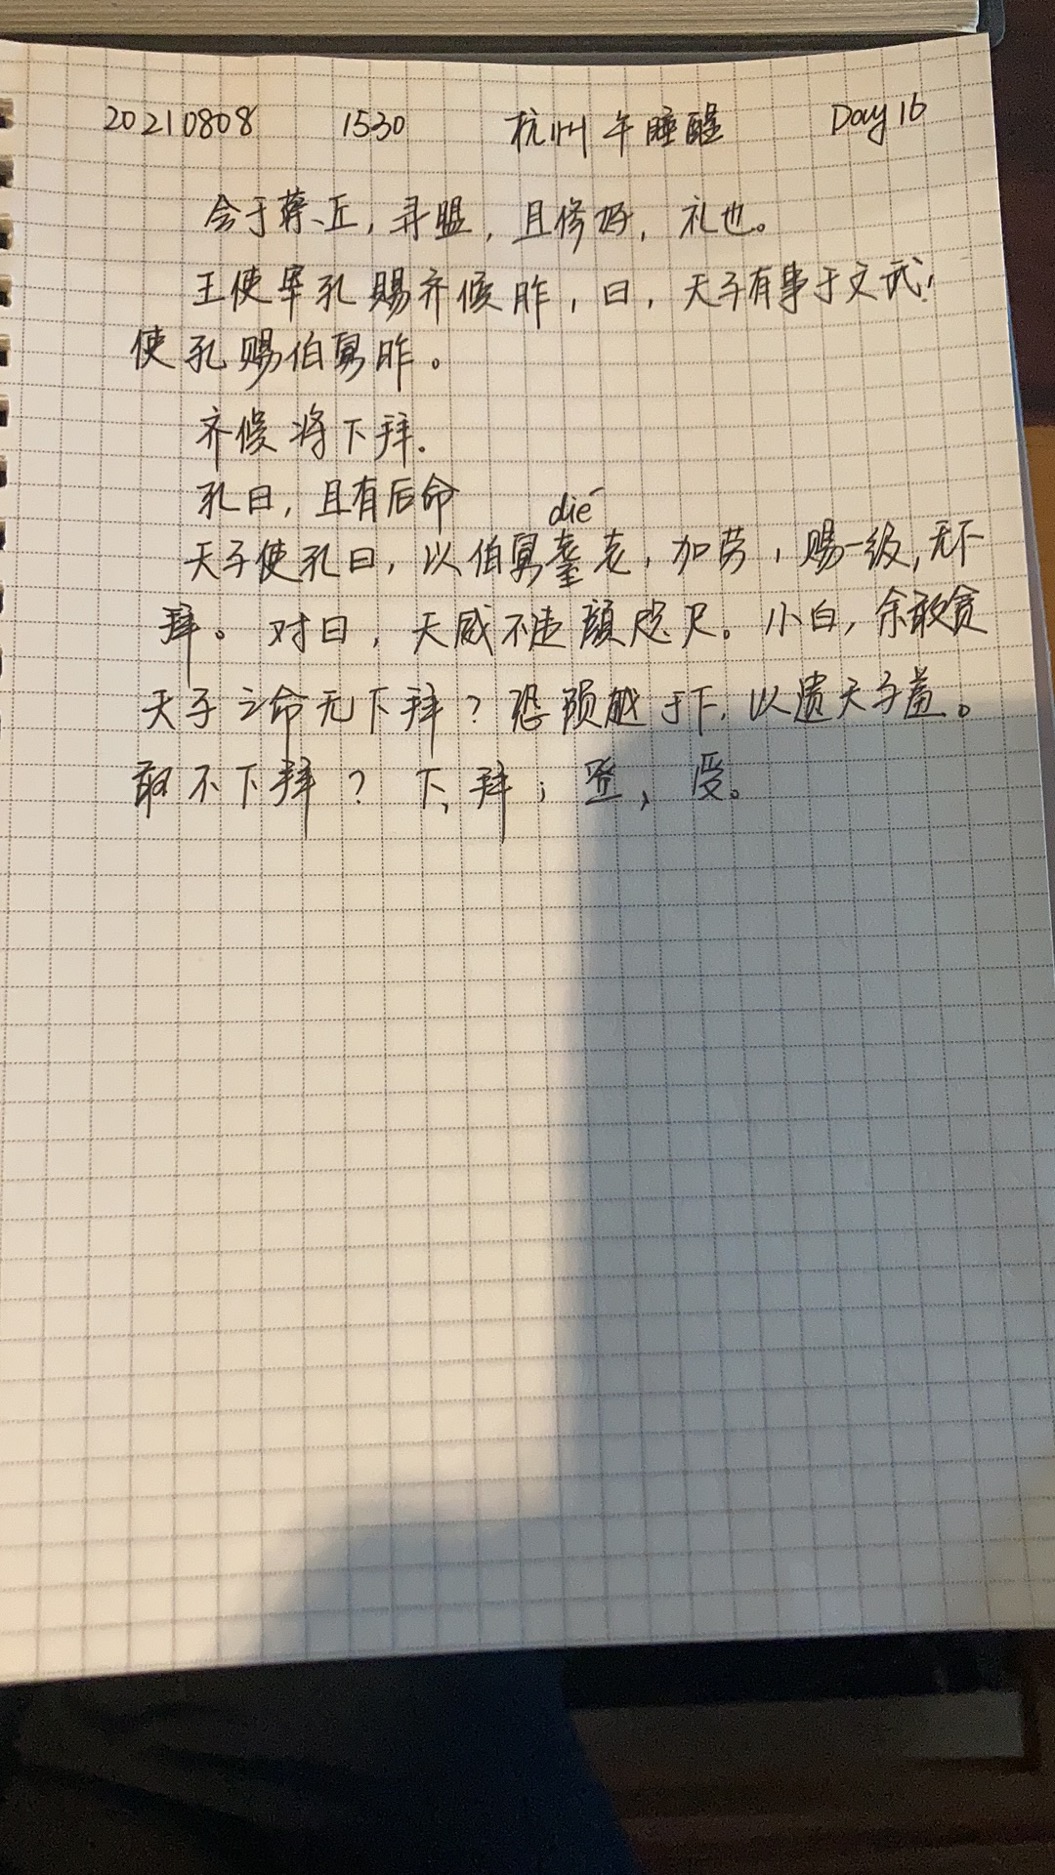 20210808 1530 杭州午睡醒 Day 16
会于葵丘，寻盟，且修好，礼也。
王使宰孔赐齐侯胙，曰，天子有事于文武，
使孔赐伯舅胙。
齐侯将下拜.
孔曰，且有后命
dié
天子使孔曰，以伯舅耋老，加劳，赐一级，无下
拜。对曰，天威不违颜咫尺。小白，余敢贪
天子之命无下拜？恐陨越于下，以遗天子羞。
敢不下拜？下、拜；登、受。